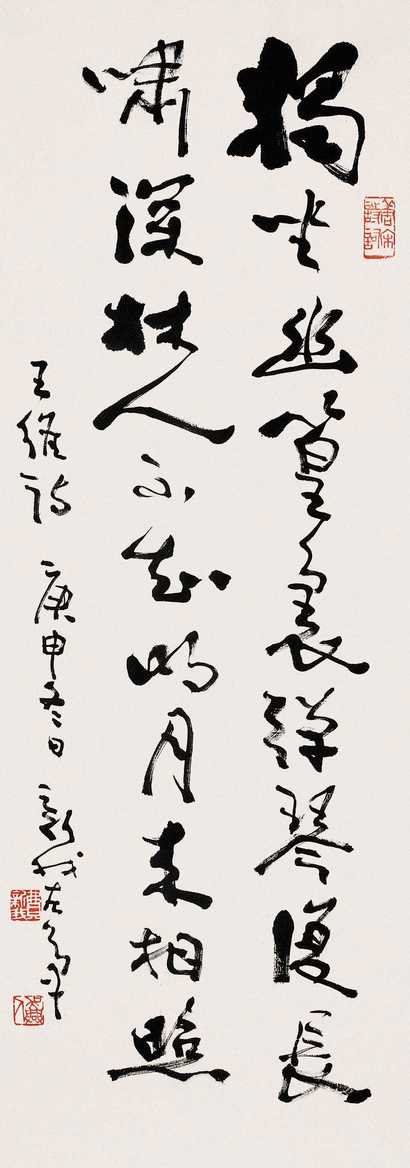 獨坐幽篁裏彈琴復長
嘯深林人不知明月來相照
王維詩 庚申冬日 新我左筆